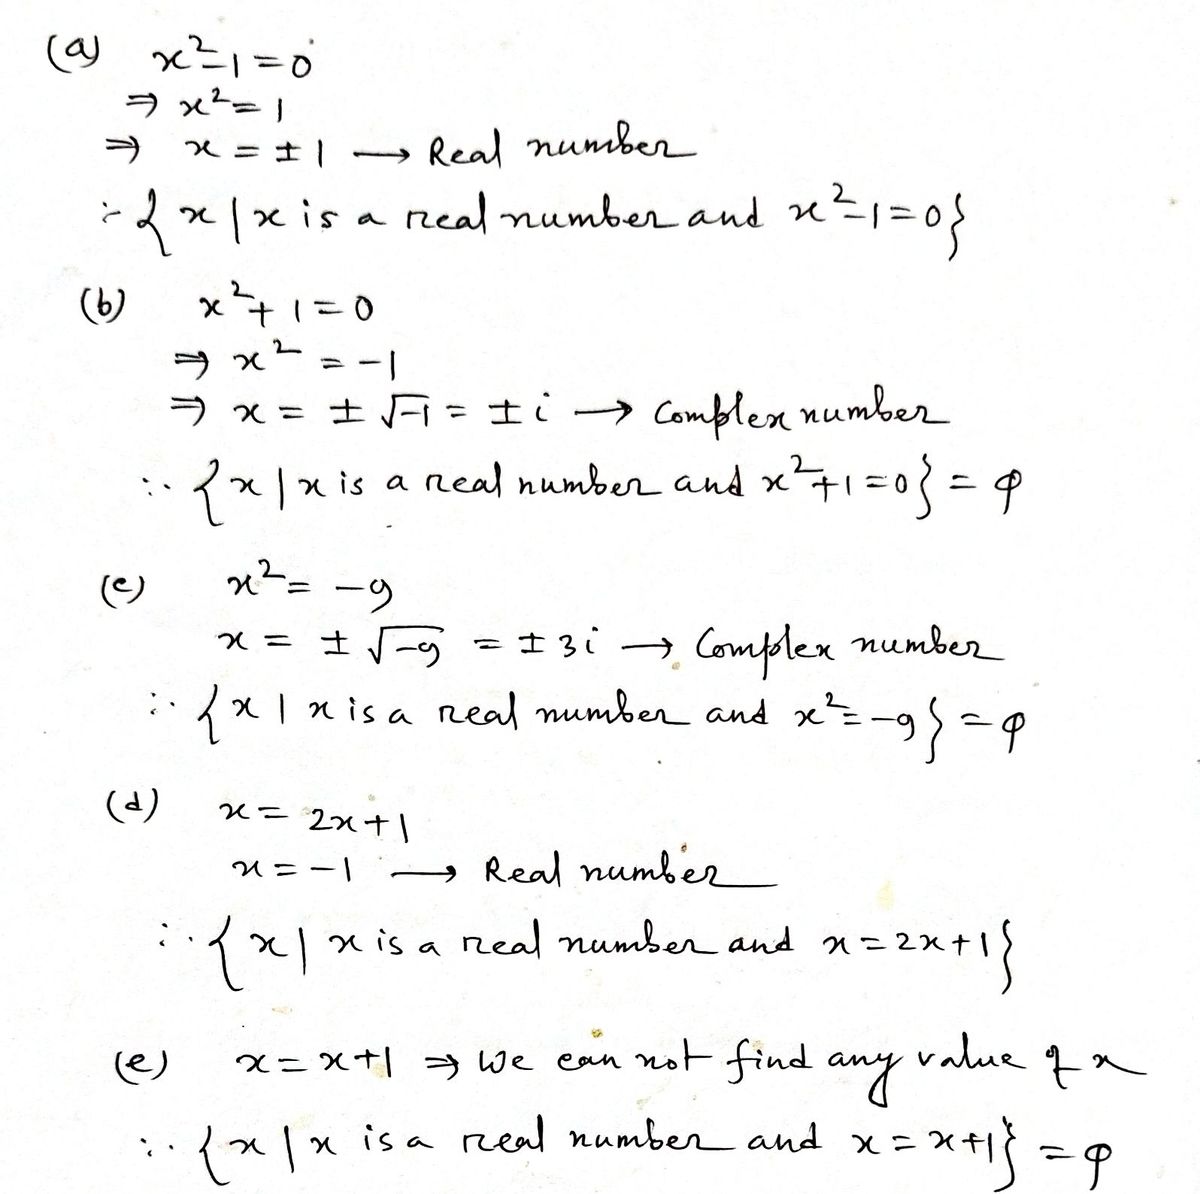 (a) x²-1=0
⇒ x²=1
⇒ x = ±1 → Real number
∴ {x | x is a real number and x²-1=0}
(b) x²+1=0
⇒ x² = -1
⇒ x = ±√-1 = ±i → Complex number
∴ {x | x is a real number and x²+1=0} = φ
(c) x² = -9
x = ±√-9 = ±3i → Complex number
∴ {x | x is a real number and x²=-9} = φ
(d) x = 2x+1
x = -1 → Real number
∴ {x | x is a real number and x=2x+1}
(e) x = x+1 ⇒ We can not find any value of x
∴ {x | x is a real number and x = x+1} = φ